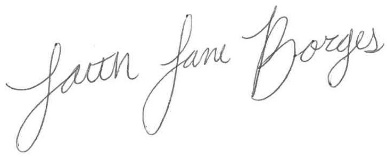 Faith Jane Borges